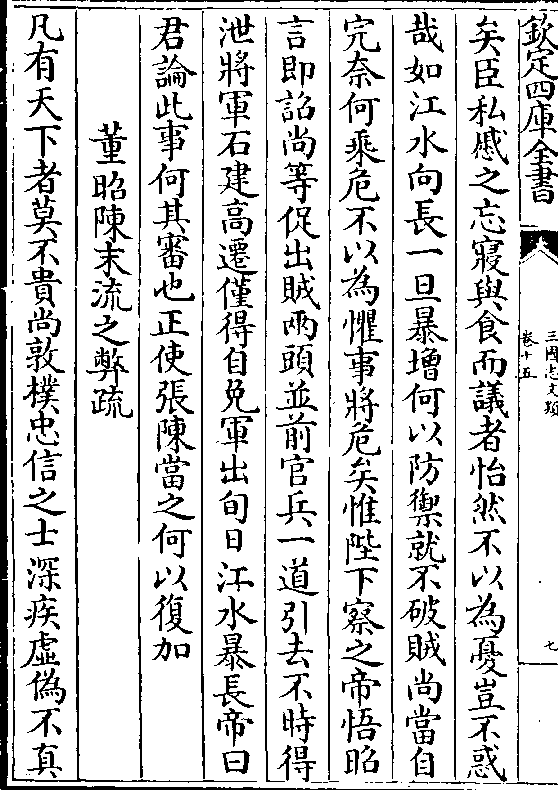 欽定四庫全書
三國志文類
卷十五
七
矣臣私慼之忘寢與食而議者怡然不以為憂豈不惑
哉如江水向長一旦暴增何以防禦就不破賊尚當自
完奈何乘危不以為懼事將危矣惟陛下察之帝悟昭
言即詔尚等促出賊兩頭並前官兵一道引去不時得
泄將軍石建高遷僅得自免軍出旬日江水暴長帝曰
君論此事何其審也正使張陳當之何以復加
董昭陳末流之弊疏
凡有天下者莫不貴尚敦樸忠信之士深疾虛偽不真